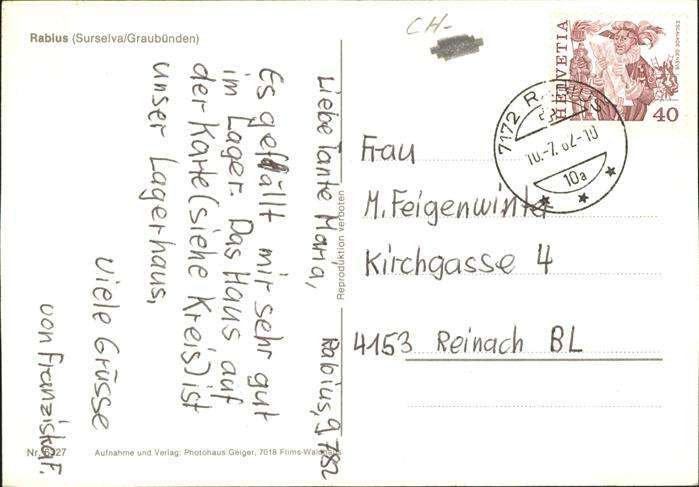 Rabius (Surselva/Graubünden)
CH-
HELVETIA
ESCALADE GENÈVE
40
7172 R
10.-7. 82-10
10a
Liebe Tante Maria,
Rabius, 9 7 82
Es gefällt mir sehr gut
im Lager. Das Haus auf
der Karte (siehe Kreis) ist
unser Lagerhaus,
Viele Grüsse
von Franziska F.
Reproduktion verboten
Frau
M. Feigenwinter
Kirchgasse 4
4153 Reinach BL
Aufnahme und Verlag: Photohaus Geiger, 7018 Flims-Waldhaus